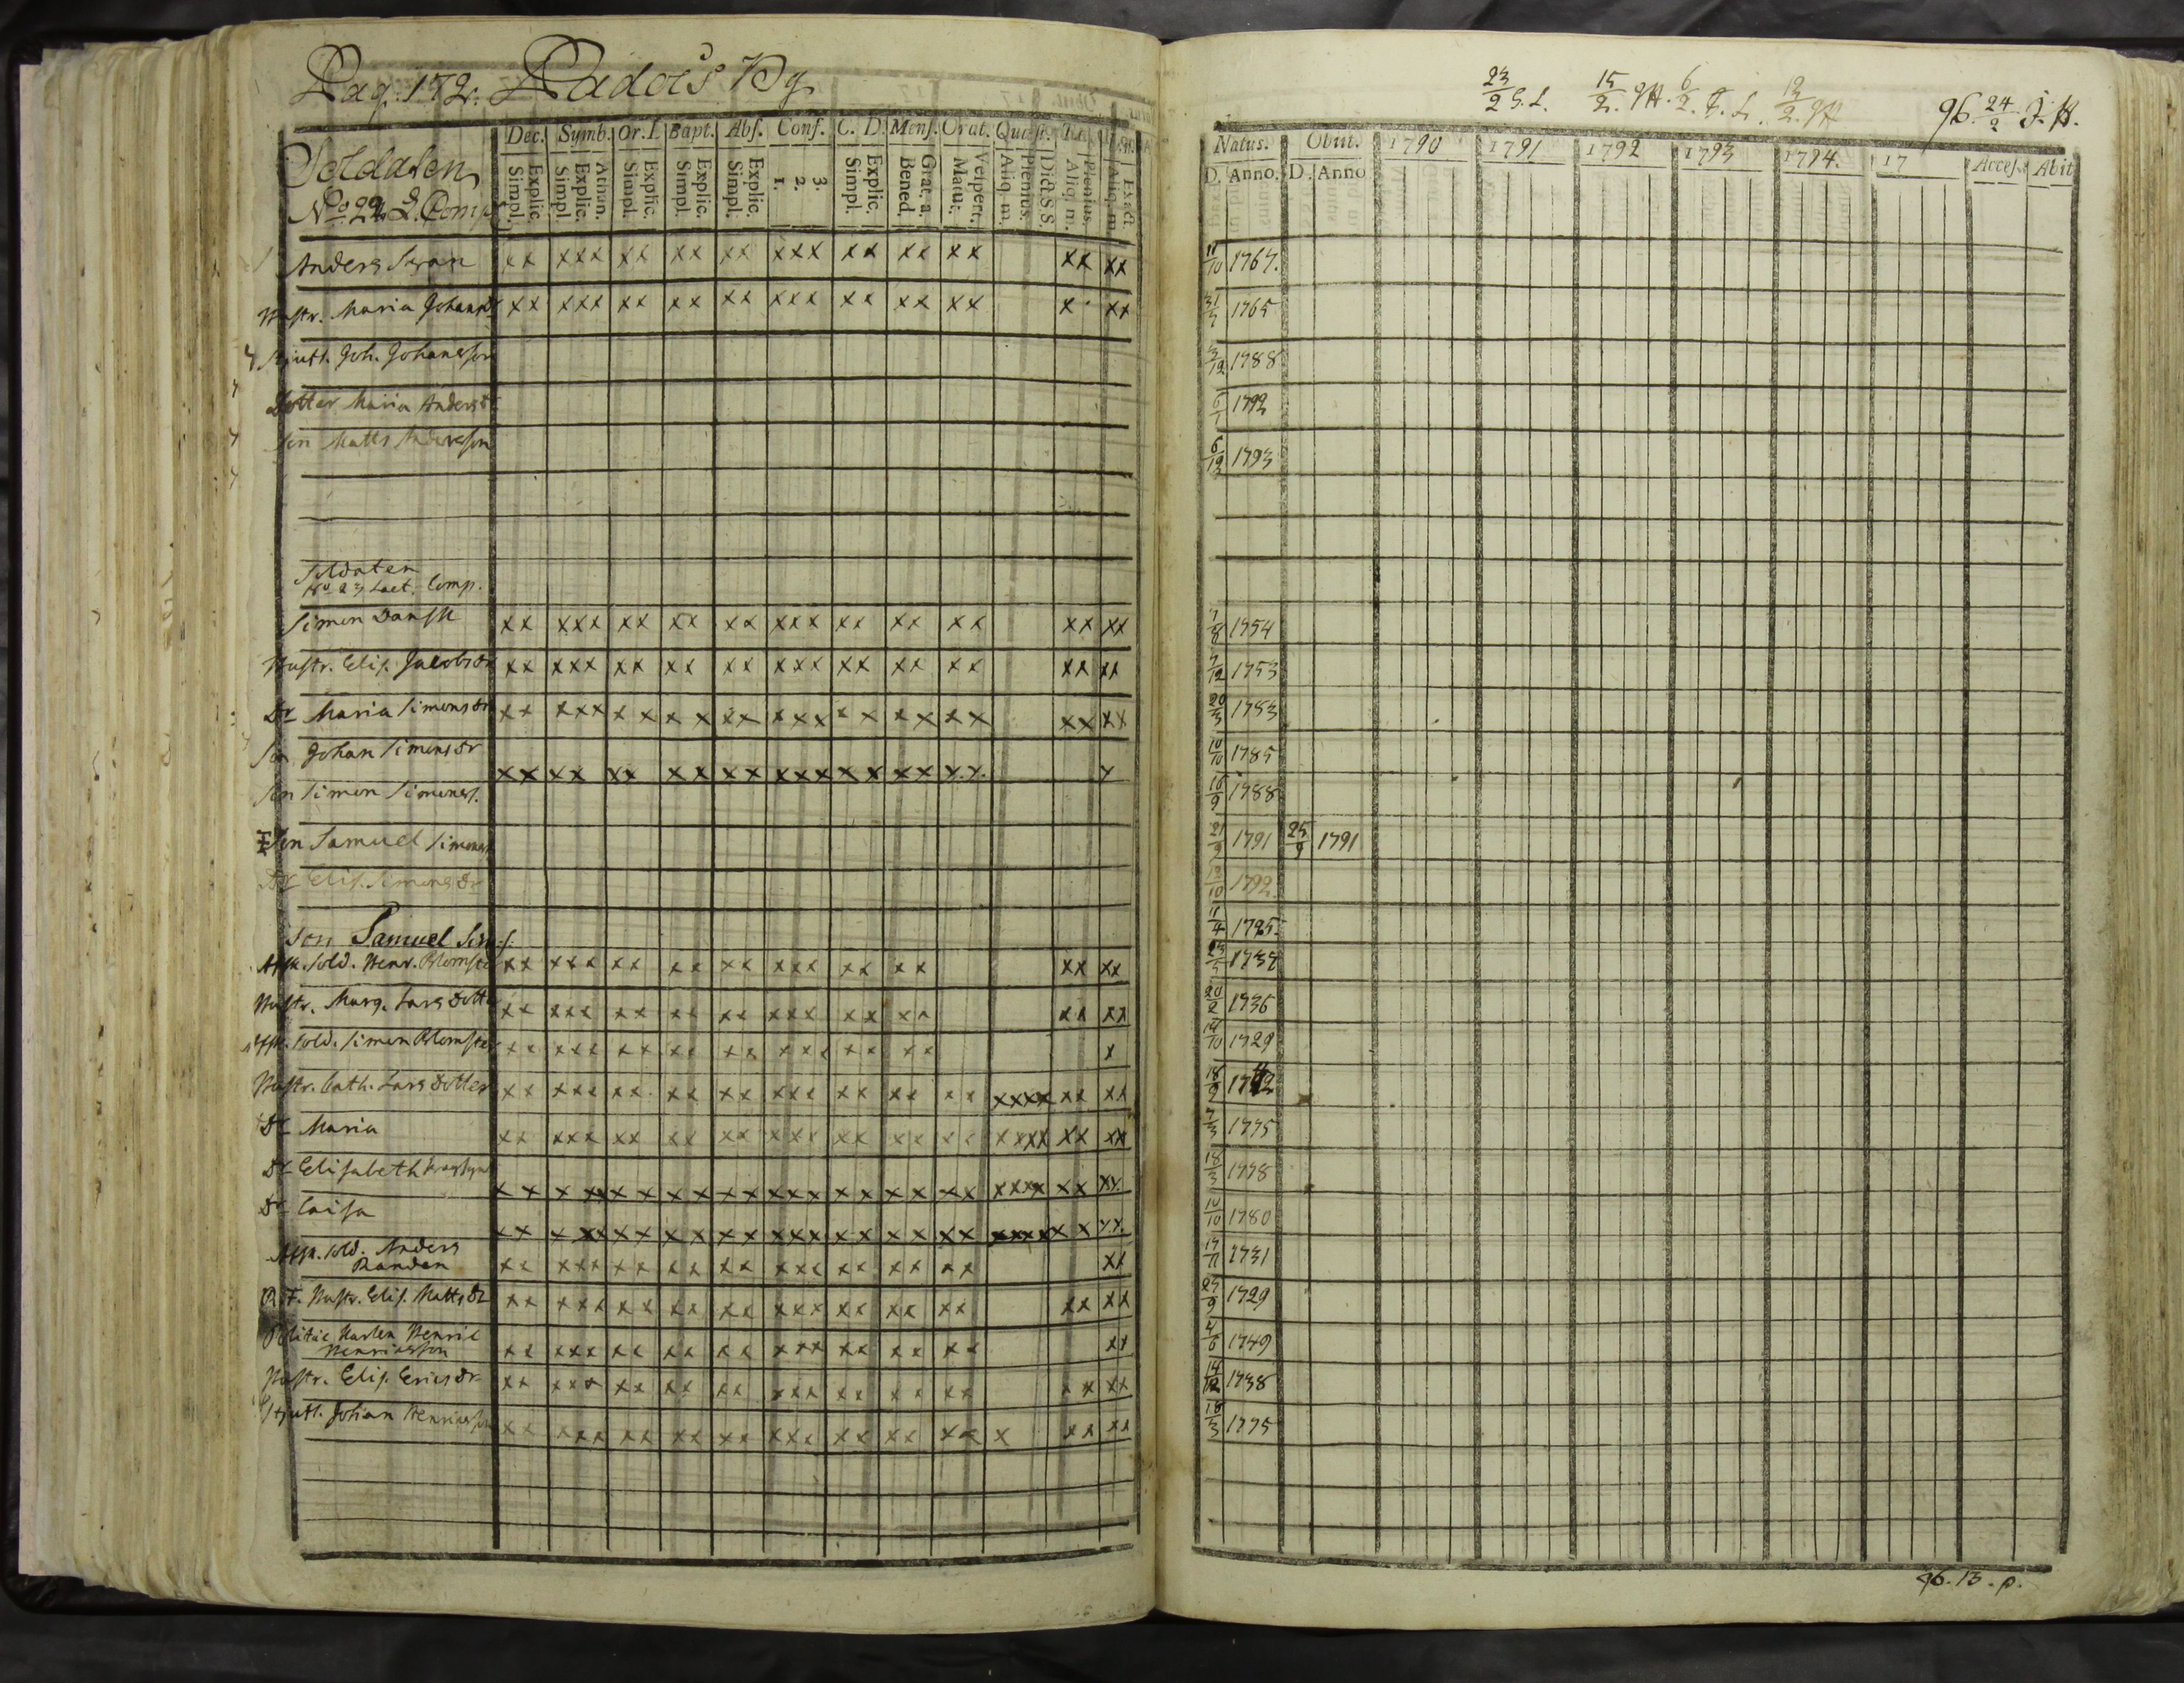 Pag. 172. Padois By
Dec. Symb. Or. D. Bapt. Abs. Conf. C. D. Mens. Orat. Quæst.
Explic. Simpl. Athan. Explic. Simpl. Explic. Simpl. Explic. Simpl. Explic. Simpl. 3. 2. 1. Explic. Simpl. Grat. a. Bened. Vespert. Matut. Dict. S.S. Plenius. Aliq. m. Plenius. Aliq. m. Exact. Aliq. m.
Soldaten
No 22 L. Comp.
Anders Svan xx xxx xx xx xx xxx xx xx xx xx xx
Hustr. Maria Johansdr xx xxx xx xx xx xxx xx xx xx x xx
Joh. Johansson
Dotter Maria Andersdr
Son Matts Andersson
Soldaten
No 23 Laet. Comp.
Simon Dansk xx xxx xx xx xx xxx xx xx xx xx xx
Hustr. Elis. Jacobsdr xx xxx xx xx xx xxx xx xx xx xx xx
Dr Maria Simonsdr xx xxx xx xx xx xxx xx xx xx xx xx
Son Johan Simonsdr xx xx xx xx xx xxx xx xx x.x. x
Son Simon Simonss.
Son Samuel Simonss
Dr Elis. Simonsdr
Son Samuel Sim:s:
Afsk. sold. Henr. Blomster xx xxx xx xx xx xxx xx xx xx xx
Hustr. Marg. Larsdott xx xxx xx xx xx xxx xx xx xx xx
Afsk. sold. Simon Blomster xx xxx xx xx xx xxx xx xx x
Hustr. Cath. Larsdotter xx xxx xx xx xx xxx xx xx xx xxxx xx xx
Dr Maria xx xxx xx xx xx xxx xx xx xx xxxx xx xx
Dr Elisabeth xx xxx xx xx xx xxx xx xx xx xxxx xx xx
Dr Caisa xx xxx xx xx xx xxx xx xx xx xxxx xx xx
Afsk. sold. Anders
Randen xx xxx xx xx xx xxx xx xx xx xx
Hustr. Elis. Mattsdr xx xxx xx xx xx xxx xx xx xx xx xx
Henric
Henricsson xx xxx xx xx xx xxx xx xx xx xx
Hustr. Elis. Ericsdr xx xxx xx xx xx xxx xx xx xx xx xx
Johan Henricsson xx xxx xx xx xx xxx xx xx xx x xx xx
23/2 G. L. 15/2. 6/2. F. L. 12/2. 96. 24/2 J. H.
Natus. Obiit. 1790 1791 1792 1793 1794. 17 Access. Abiit
D. Anno. D. Anno
11/10 1767.
31/7 1765
3/12 1788
6/1 1792
6/12 1793
7/8 1754
7/12 1753
20/3 1783
10/10 1785
16/9 1788
21/9 1791 25/9 1791
13/10 1792
11/4 1795.
23/5 1737
20/2 1736
14/10 1729
18/2 1742
7/3 1775
18/3 1778
10/10 1780
17/11 1731
23/9 1729
4/6 1749
14/12 1738
18/3 1775
96. 13. p.